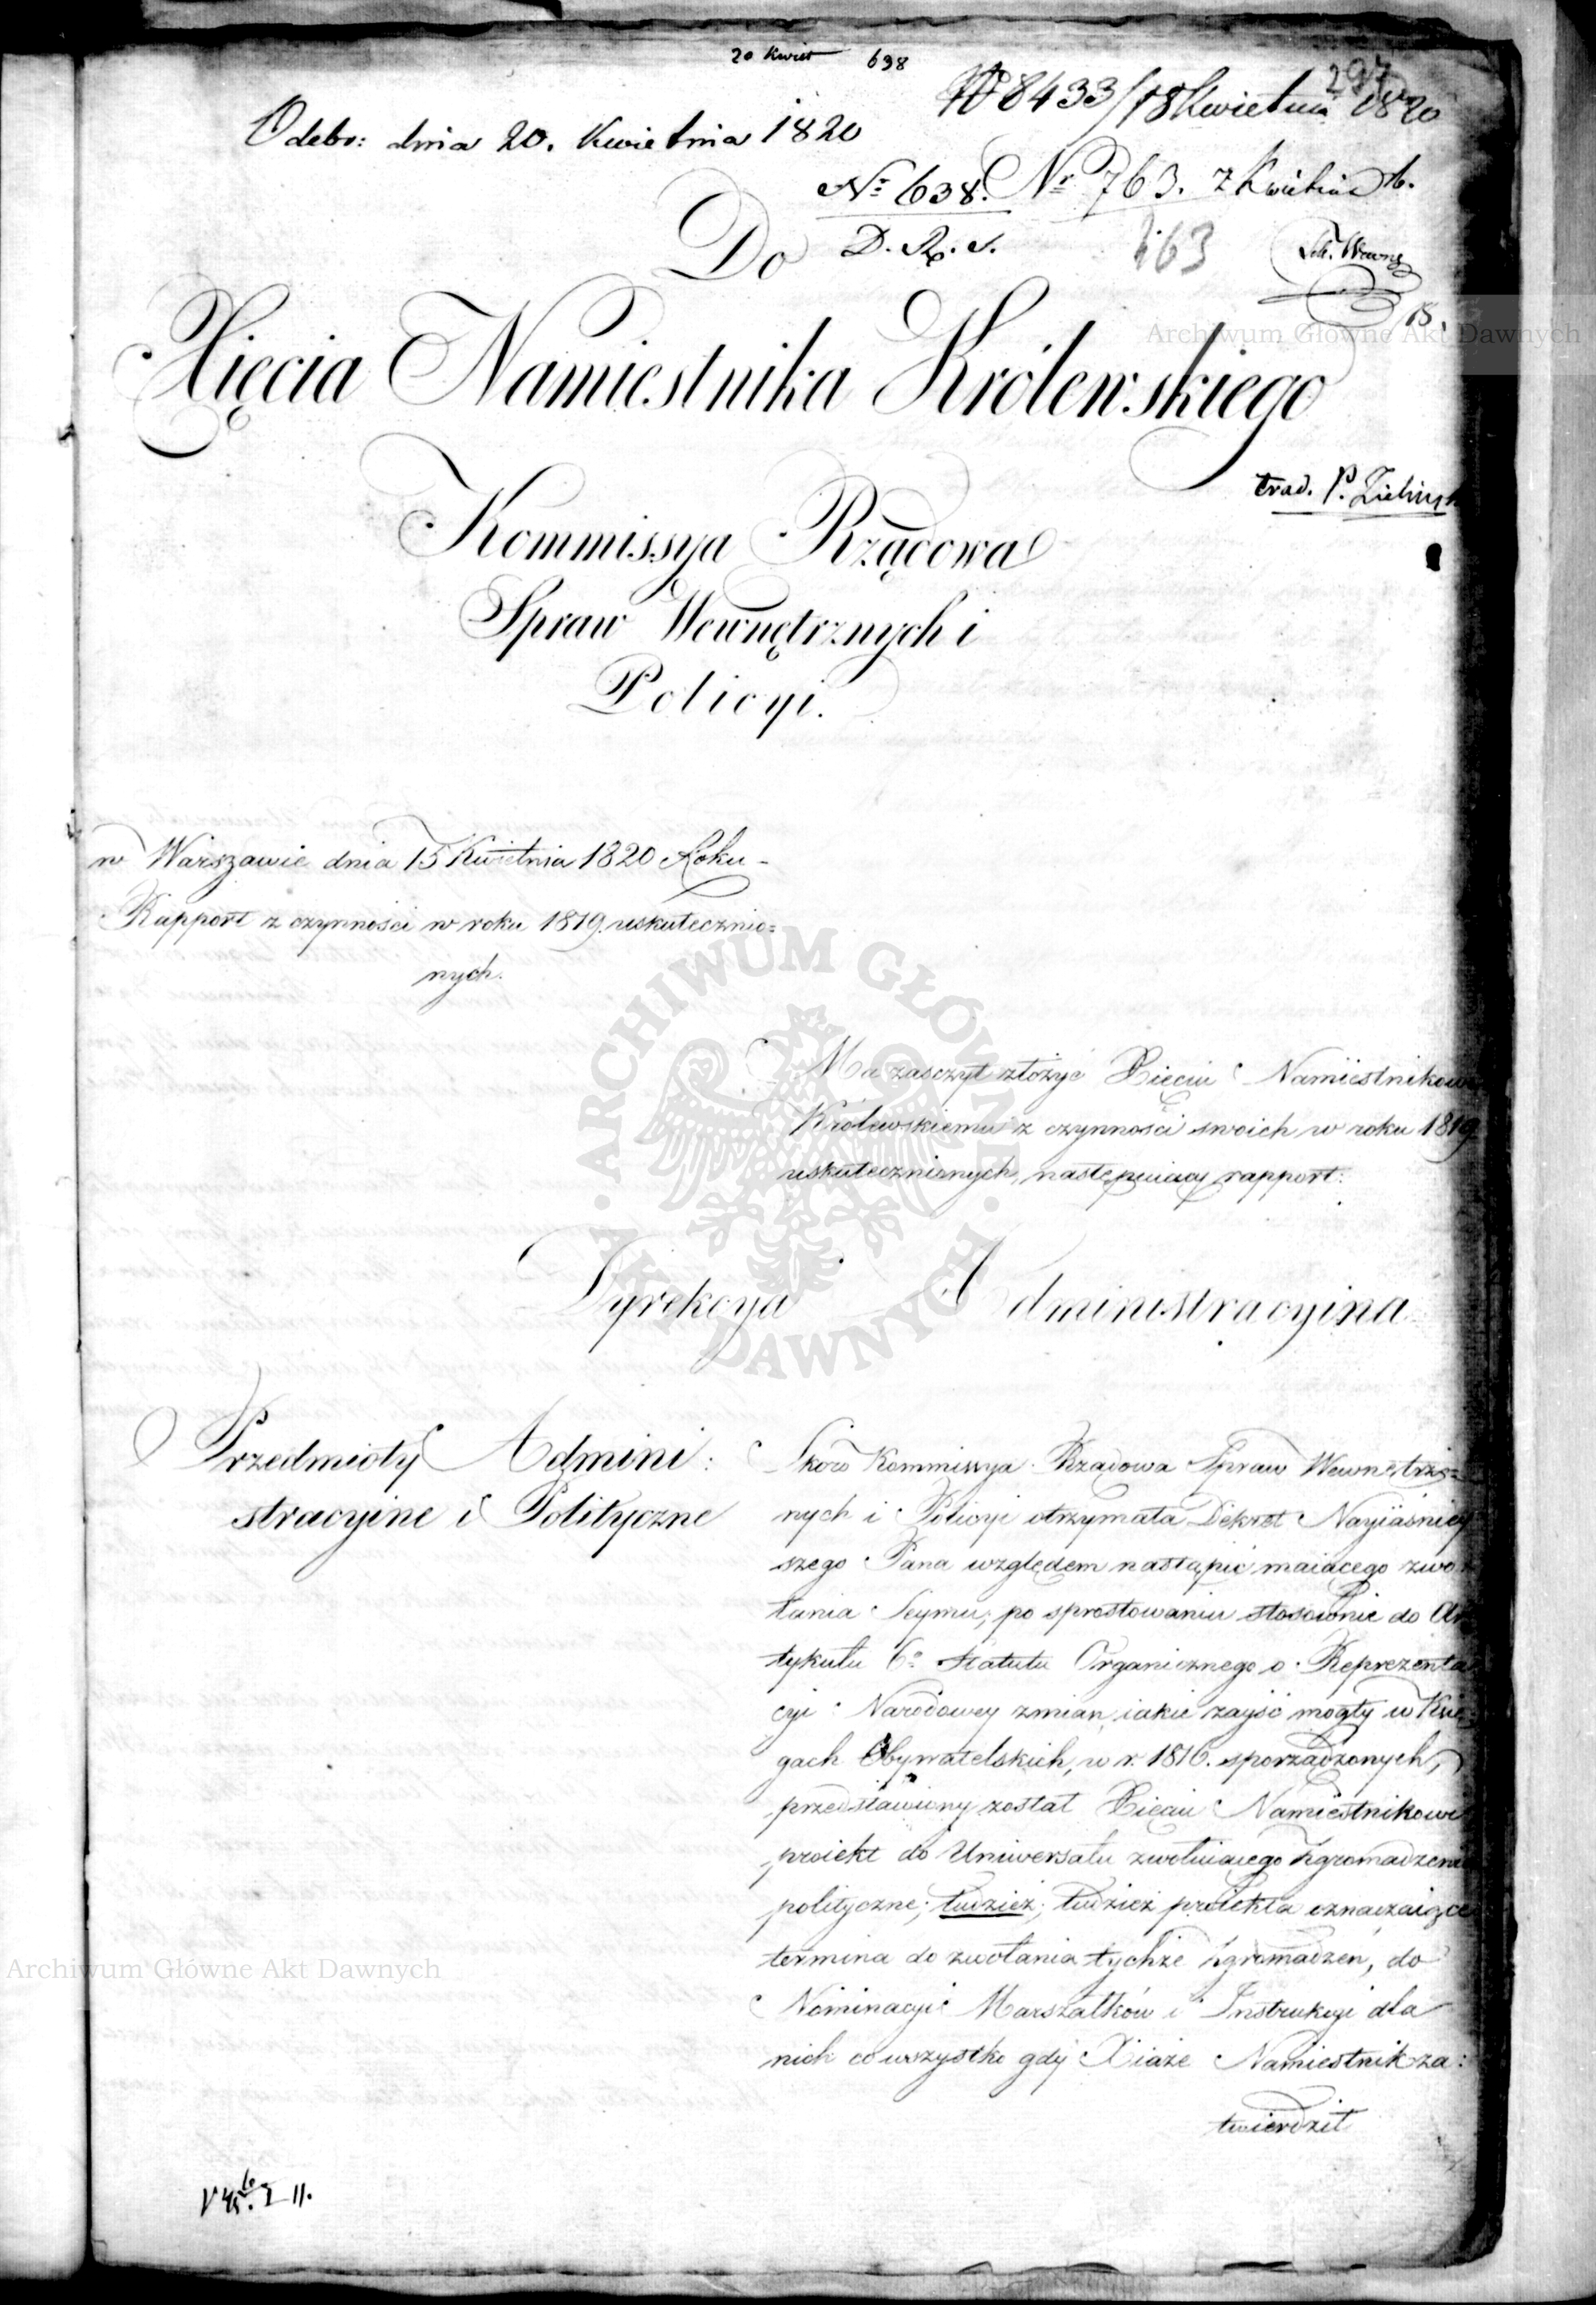 20 Kwiet 638
297
N 8433/18 Kwietnia 1820
Odebr: dnia 20. Kwietnia 1820
Nr 638. Nr 763. z Kwietnia
D. R. S.
763
Do
Xięcia Namiestnika Królewskiego
trad. P. Zielinsk
Kommissya Rządowa
Spraw Wewnętrznych i
Policyi.
w Warszawie dnia 15 Kwietnia 1820 Roku
Rapport z czynności w roku 1819. uskutecznio=
nych.
Ma zasczyt złożyć Xięciu Namiestnikow
Królewskiemu z czynności swoich w roku 1819
uskutecznionych, następuiący rapport:
Dyrekcya Administracyina
Przedmioty Admini:
stracyine i Polityczne
Skoro Kommissya Rządowa Spraw Wewnetrz=
nych i Policyi otrzymała Dekret Nayiaśniey
szego Pana względem nastąpić maiącego zwo
łania Seymu, po sprostowaniu stosownie do Ar
tykułu 6o Statutu Organicznego o Reprezenta
cyi Narodowey zmian iakie zayść mogły w Księ
gach Obywatelskich, w r. 1816. sporządzonych,
przedstawiony został Xięciu Namiestnikowi
proiekt do Uniwersału zwołuiącego Zgromadzeni
polityczne; tudzież; tudzież proiekta oznaczaiące
termina do zwołania tychże Zgromadzeń, do
Nominacyi Marszałków i Instrukcyi dla
nich co wszystko gdy Xiąże Namiestnik za:
twierdził
Archiwum Główne Akt Dawnych
ARCHIWUM GŁÓWNE AKT DAWNYCH
Archiwum Główne Akt Dawnych